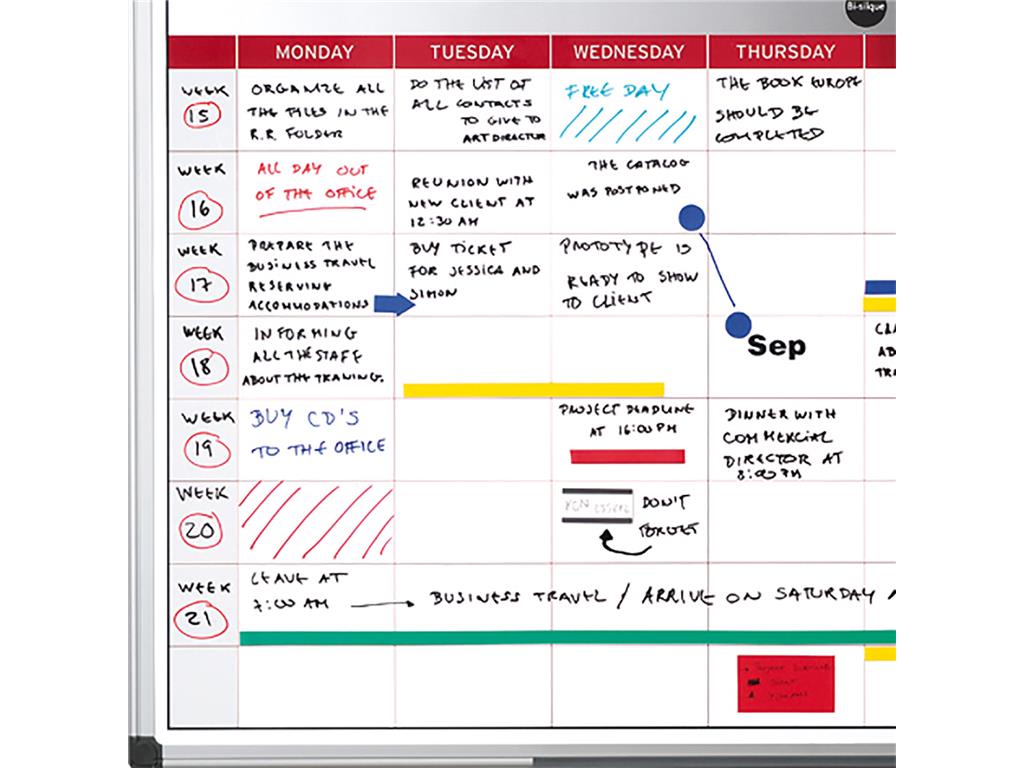 Bi-silque
MONDAY TUESDAY WEDNESDAY THURSDAY
WEEK
15
ORGANIZE ALL
THE FILES IN THE
R.R. FOLDER
DO THE LIST OF
ALL CONTACTS
TO GIVE TO
ART DIRECTOR
FREE DAY
THE BOOK EUROPE
SHOULD BE
COMPLETED
WEEK
16
ALL DAY OUT
OF THE OFFICE
REUNION WITH
NEW CLIENT AT
12:30 AM
THE CATALOG
WAS POSTPONED
WEEK
17
PREPARE THE
BUSINESS TRAVEL
RESERVING
ACCOMMODATIONS
BUY TICKET
FOR JESSICA AND
SIMON
PROTOTYPE IS
READY TO SHOW
TO CLIENT
WEEK
18
INFORMING
ALL THE STAFF
ABOUT THE TRANING.
Sep
WEEK
19
BUY CD'S
TO THE OFFICE
PROJECT DEADLINE
AT 16:00 PM
DINNER WITH
COMMERCIAL
DIRECTOR AT
8:00 PM
WEEK
20
DON'T
FORGET
WEEK
21
LEAVE AT
7:00 AM
BUSINESS TRAVEL / ARRIVE ON SATURDAY